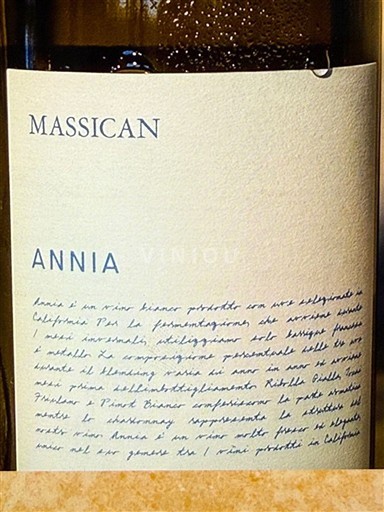 MASSICAN
ANNIA
VINIOU
Annia è un vino bianco prodotto con uve selezionate in
California Per la fermentazione, che avviene durante
i mesi invernali, utilizziamo solo barrique francesi
e metallo. La composizione percentuale delle tre uve
durante il blending varia di anno in anno ed avviene
mesi prima dell'imbottigliamento. Ribolla Gialla, Tocai
Friulano e Pinot Bianco conferiscono la parte aromatica
mentre lo chardonnay rappresenta la struttura del
nostro vino. Annia è un vino molto fresco ed elegante,
unico nel suo genere tra i vini prodotti in California